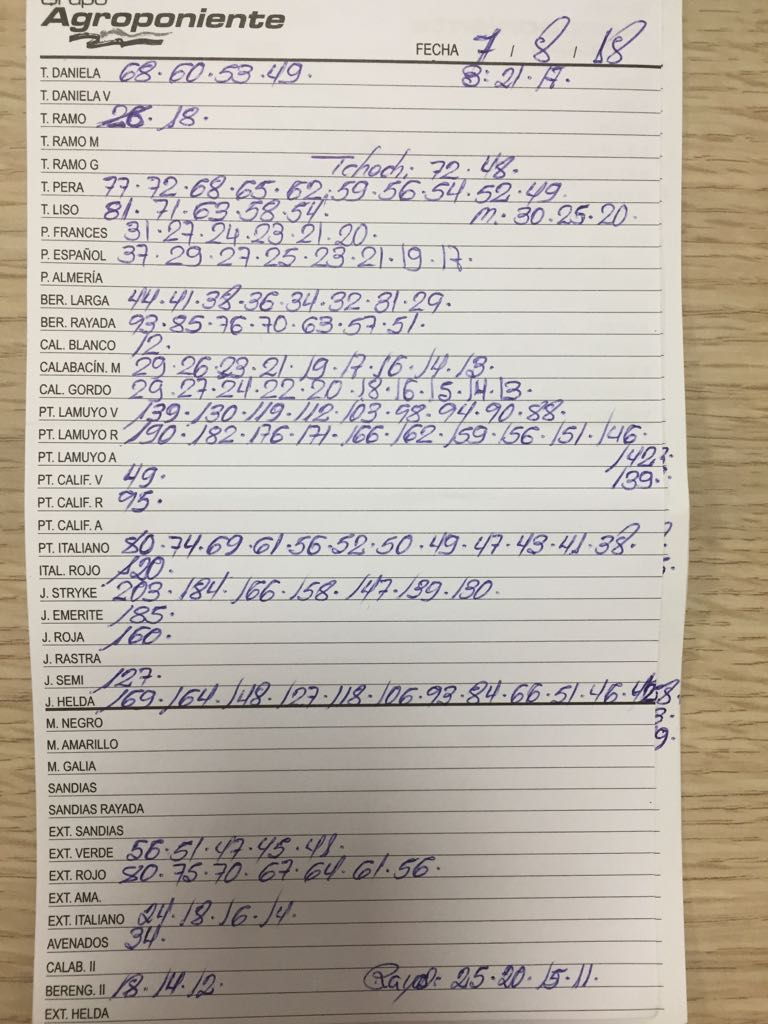 Grupo
Agroponiente
FECHA 7 / 8 / 18
T. DANIELA 68. 60. 53. 49. 8: 21. 17.
T. DANIELA V
T. RAMO 26. 18.
T. RAMO M
T. RAMO G Tchoch: 72. 48.
T. PERA 77. 72. 68. 65. 62. 59. 56. 54. 52. 49.
T. LISO 81. 71. 63. 58. 54. M. 30. 25. 20.
P. FRANCES 31. 27. 24. 23. 21. 20.
P. ESPAÑOL 37. 29. 27. 25. 23. 21. 19. 17.
P. ALMERÍA
BER. LARGA 44. 41. 38. 36. 34. 32. 31. 29.
BER. RAYADA 93. 85. 76. 70. 63. 57. 51.
CAL. BLANCO 12.
CALABACÍN. M 29. 26. 23. 21. 19. 17. 16. 14. 13.
CAL. GORDO 29. 27. 24. 22. 20. 18. 16. 15. 14. 13.
PT. LAMUYO V 139. 130. 119. 112. 103. 98. 94. 90. 88.
PT. LAMUYO R 190. 182. 176. 171. 166. 162. 159. 156. 151. 146.
PT. LAMUYO A 142.
PT. CALIF. V 49. 139.
PT. CALIF. R 95.
PT. CALIF. A
PT. ITALIANO 80. 74. 69. 61. 56. 52. 50. 49. 47. 43. 41. 38.
ITAL. ROJO 120.
J. STRYKE 203. 184. 166. 158. 147. 139. 130.
J. EMERITE 185.
J. ROJA 160.
J. RASTRA
J. SEMI 127.
J. HELDA 169. 164. 148. 127. 118. 106. 93. 84. 66. 51. 46.
M. NEGRO
M. AMARILLO
M. GALIA
SANDIAS
SANDIAS RAYADA
EXT. SANDIAS
EXT. VERDE 56. 51. 47. 45. 41.
EXT. ROJO 80. 75. 70. 67. 64. 61. 56.
EXT. AMA.
EXT. ITALIANO 24. 18. 16. 14.
AVENADOS 34.
CALAB. II
BERENG. II 18. 14. 12. Rayad: 25. 20. 15. 11.
EXT. HELDA